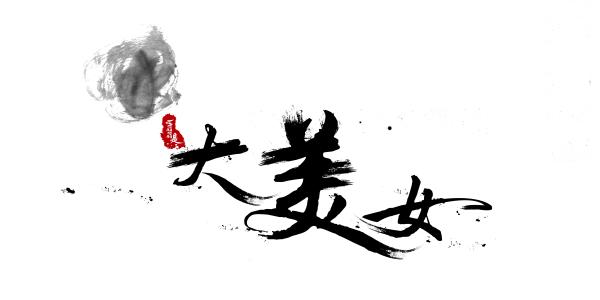 大美女